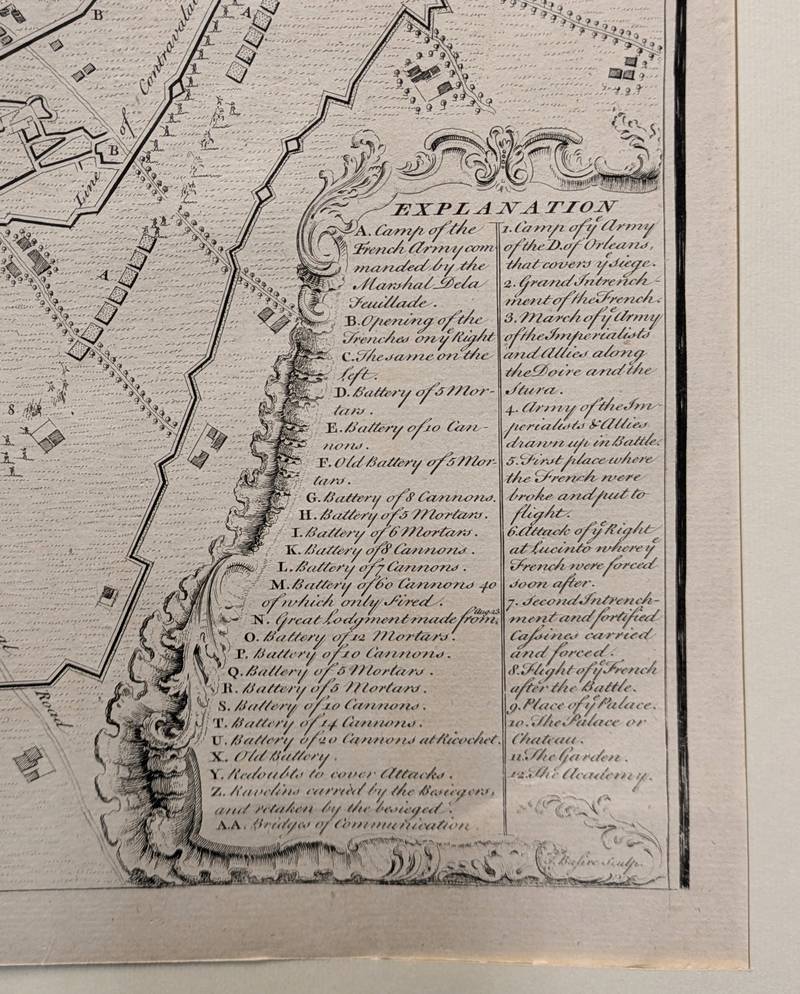 B
A
Line of Contravalla
B
A
8
Road
EXPLANATION
A. Camp of the
French Army com
manded by the
Marshal Dela
Feuillade.
B. Opening of the
Trenches on yͤ Right
C. The same on the
left.
D. Battery of 5 Mor-
tars.
E. Battery of 10 Can-
nons.
F. Old Battery of 5 Mor-
tars.
G. Battery of 8 Cannons.
H. Battery of 5 Mortars.
I. Battery of 6 Mortars.
K. Battery of 8 Cannons.
L. Battery of 7 Cannons.
M. Battery of 60 Cannons 40
of which only Fired.
N. Great Lodgment made from Aug. 23.
O. Battery of 12 Mortars.
P. Battery of 10 Cannons.
Q. Battery of 5 Mortars.
R. Battery of 5 Mortars.
S. Battery of 10 Cannons.
T. Battery of 14 Cannons.
U. Battery of 20 Cannons at Ricochet.
X. Old Battery.
Y. Redoubts to cover Attacks.
Z. Ravelins carried by the Besiegers,
and retaken by the besieged.
A.A. Bridges of Communication
1. Camp of yͤ Army
of the D. of Orleans,
that covers yͤ siege.
2. Grand Intrench-
ment of the French.
3. March of yͤ Army
of the Imperialists
and Allies along
the Doire and the
Stura.
4. Army of the Im-
perialists & Allies
drawn up in Battle.
5. First place where
the French were
broke and put to
flight.
6. Attack of yͤ Right
at Lucinto where yͤ
French were forced
soon after.
7. Second Intrench-
ment and fortified
Cassines carried
and forced.
8. Flight of yͤ French
after the Battle.
9. Place of yͤ Palace.
10. The Palace or
Chateau.
11. The Garden.
12. The Academy.
J. Basire Sculp.